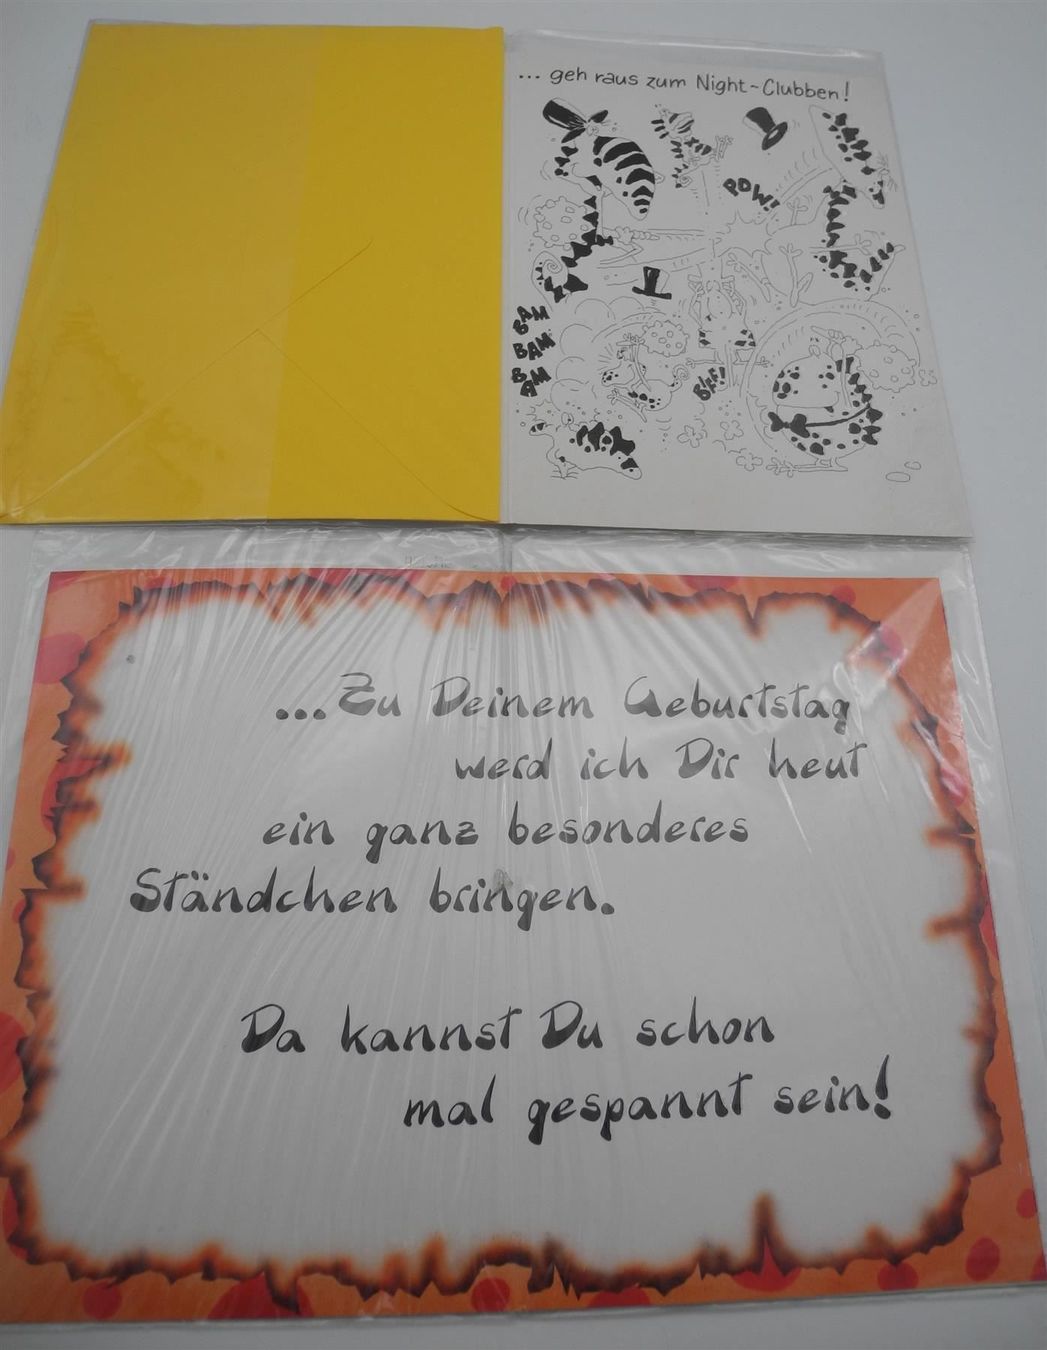 ... geh raus zum Night-Clubben!
POW!
BAM
BAM
BAM
BIFF!
...Zu Deinem Geburtstag
werd ich Dir heut
ein ganz besonderes
Ständchen bringen.
Da kannst Du schon
mal gespannt sein!